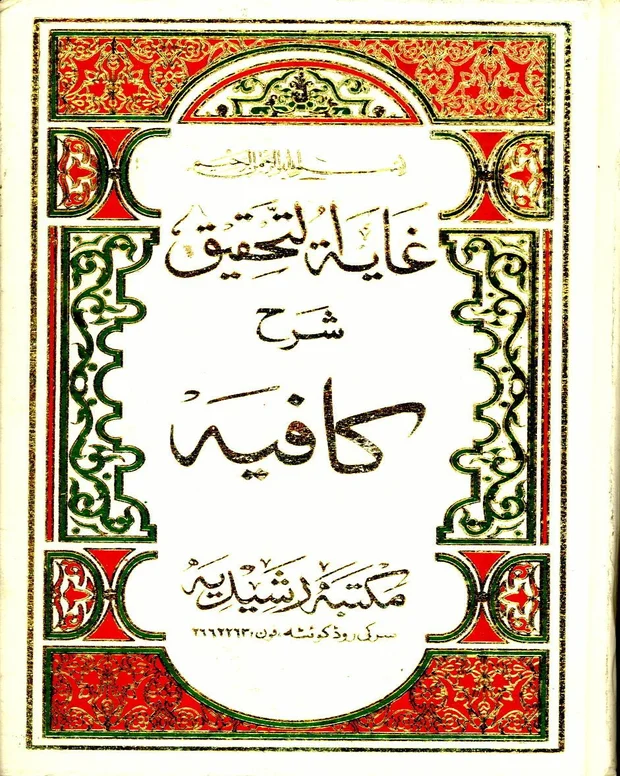 بسم الله الرحمن الرحيم
غاية التحقيق
شرح
كافيه
مكتبه رشيديه
سركی روڈ كوئٹه ، فون: ۲۶۶۲۲۶۳